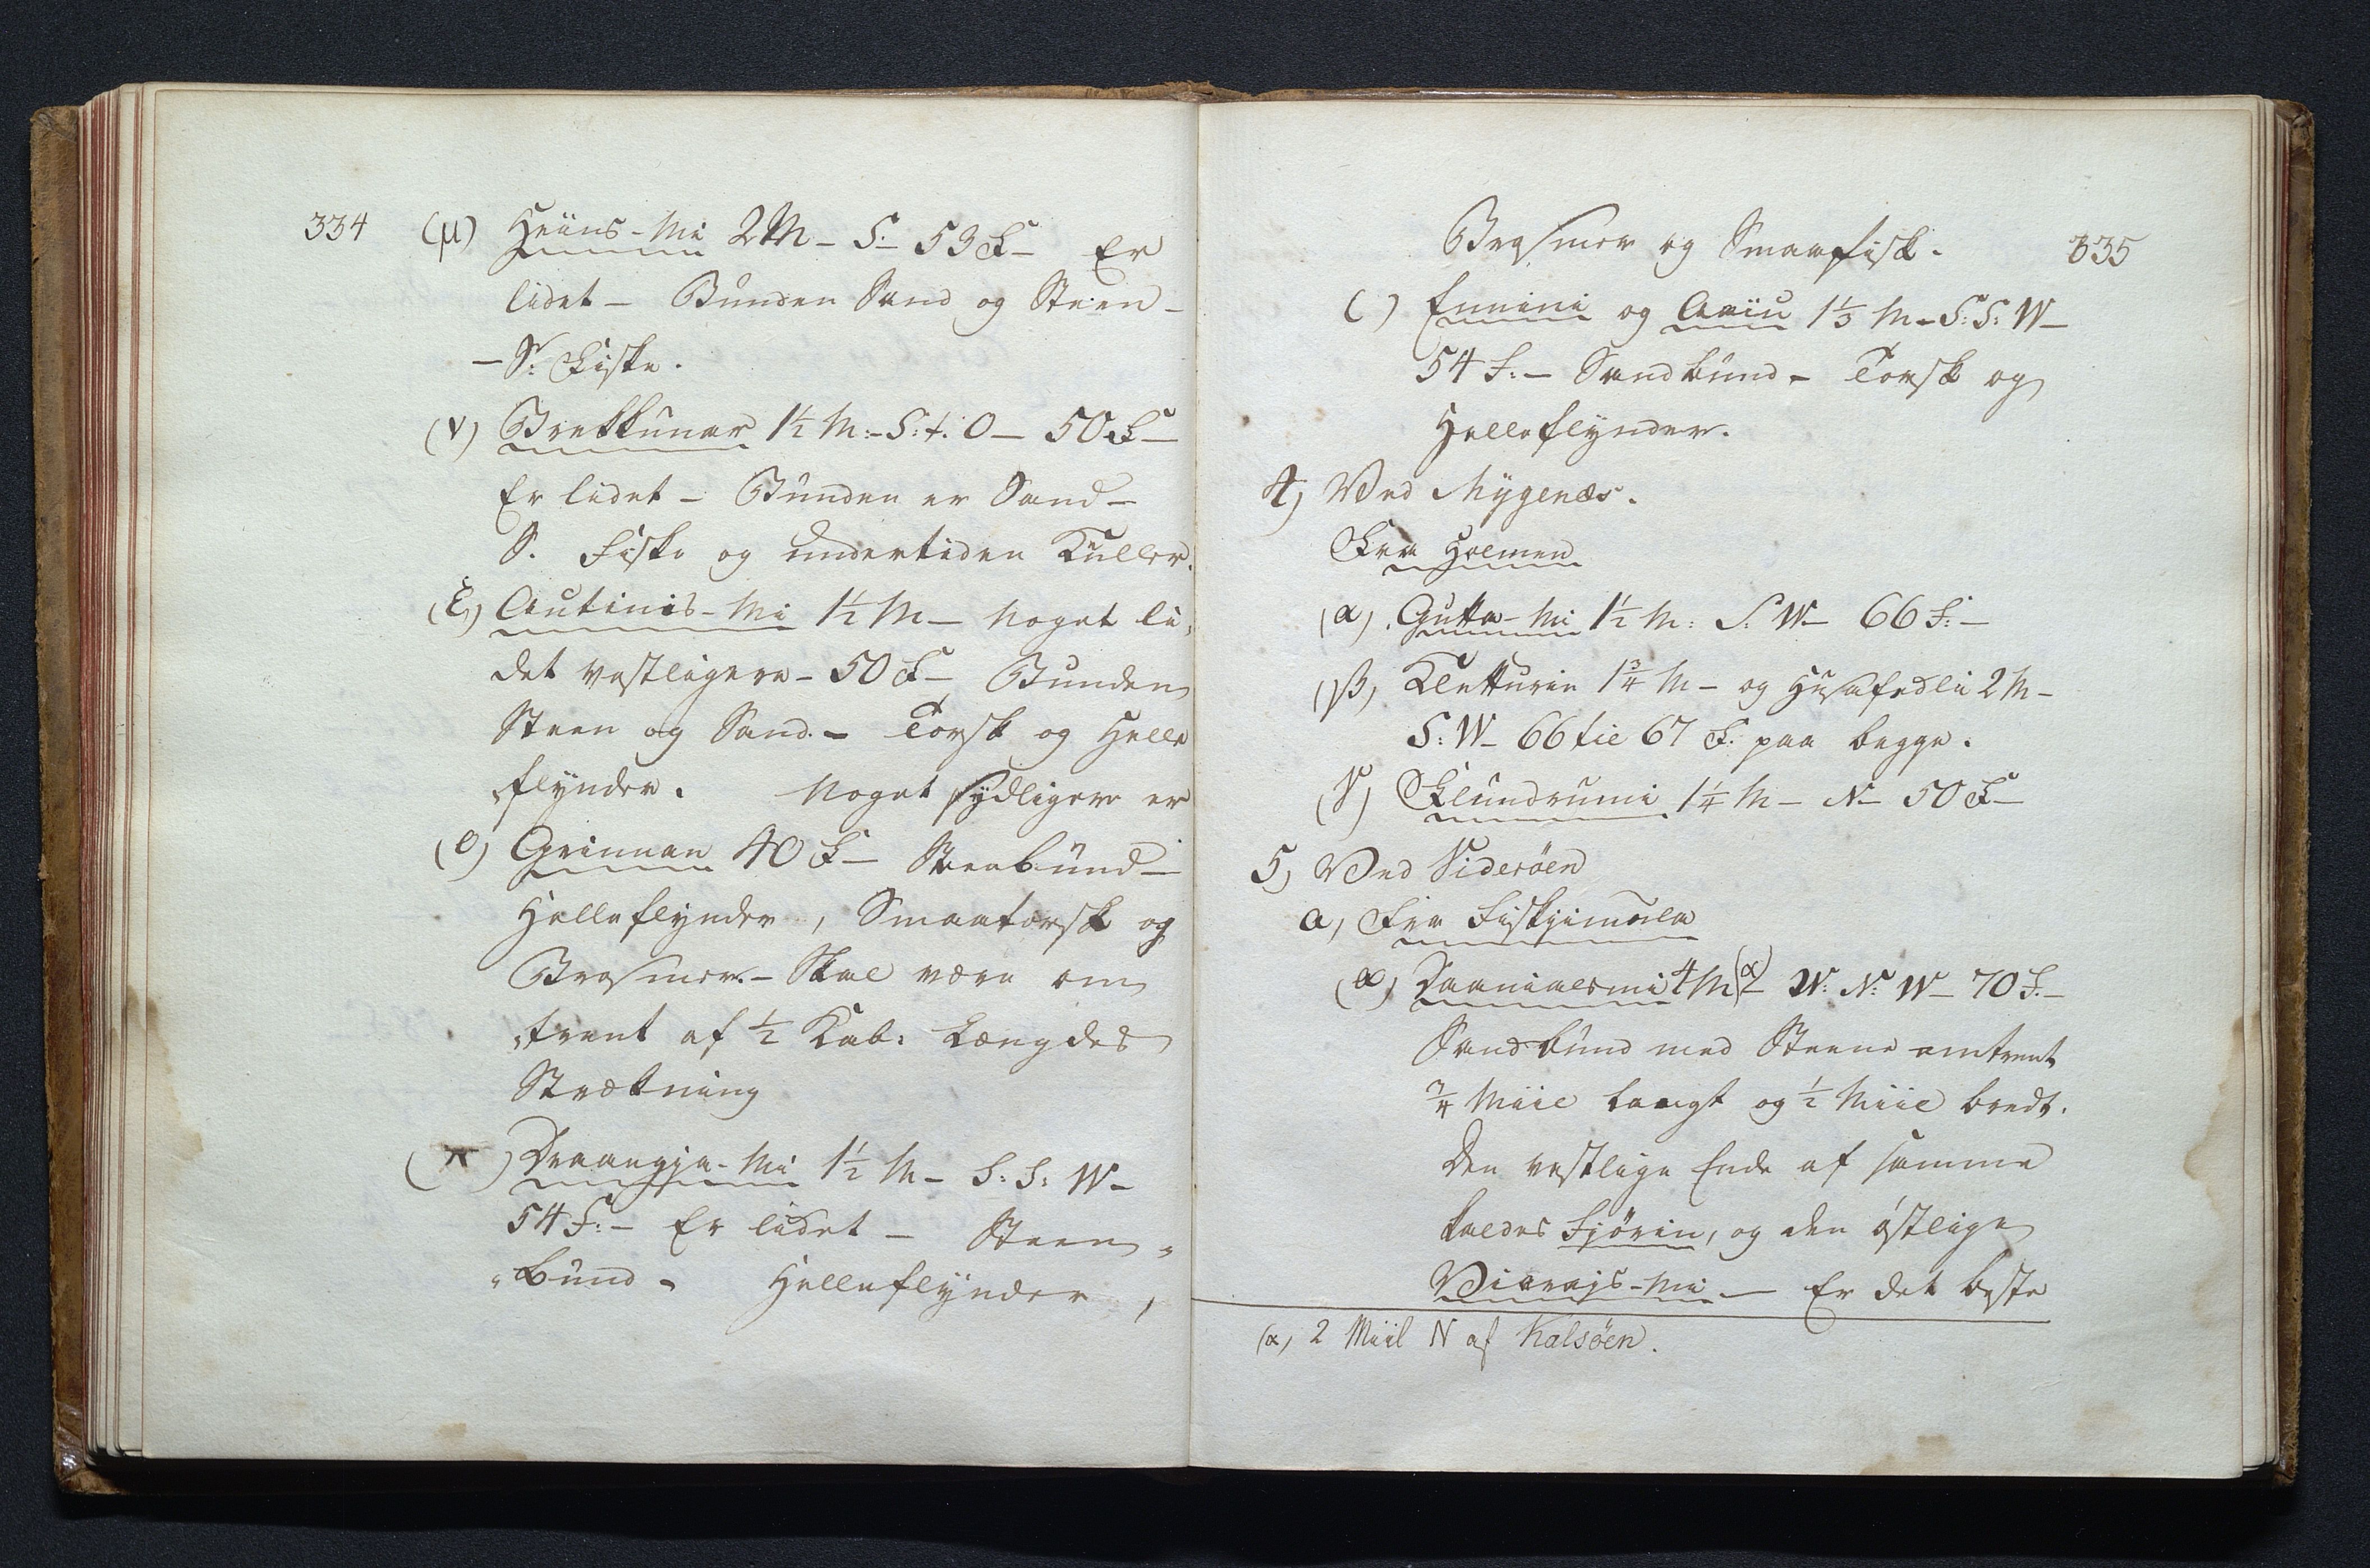 334
(μ) Heüns-Mi 2 M - S: - 53 F - Er
lidet - Bunden Sand og Steen -
- S: Fiske.
(ν) Brekkunar 1½ M: - S: t: O - 50 F -
Er lidet - Bunden er Sand -
S. Fiske og undertiden Kuller.
(ξ) Autinis-Mi 1½ M - Noget li,
det vestligere - 50 F - Bunden
Steen og Sand. - Torsk og Helle
flynder. Noget sydligere er
(ο) Grinnan 40 F - Steenbund -
Helleflynder, Smaatorsk og
Brosmer. - Skal være om
trent af ½ Kab: Længdes
Strækning
(π) Draangja-Mi 1½ M - S: S: W -
54 F: - Er lidet - Steen
bund - Helleflynder,
335
Brosmer og Smaafisk.
( ) Ennini og 1⅓ M - S: S: W -
54 F: - Sandbund - Torsk og
Helleflynder.
4) Ved Mygenæs.
Fra Holmen
(α) Gutta-Mi 1½ M: S: W - 66 F: -
(β) Kletturin 1¾ M - og Husafedli 2 M -
S: W - 66 til 67 F. paa begge.
(γ) Flundrumi 1¼ M - N - 50 F -
5) Ved Videröen
a) Fra Fiskjimala
(α) Daanialsmi 4 M (α) - W: N: W - 70 F. -
Sandbund med Steene omtrent
¾ Miil langt og ½ Miil bredt.
Den vestlige Ende af samme
kaldes Fjörin, og den östlige
Viereis-Mi - Er det beste
(α) 2 Miil N af Kalsöen.